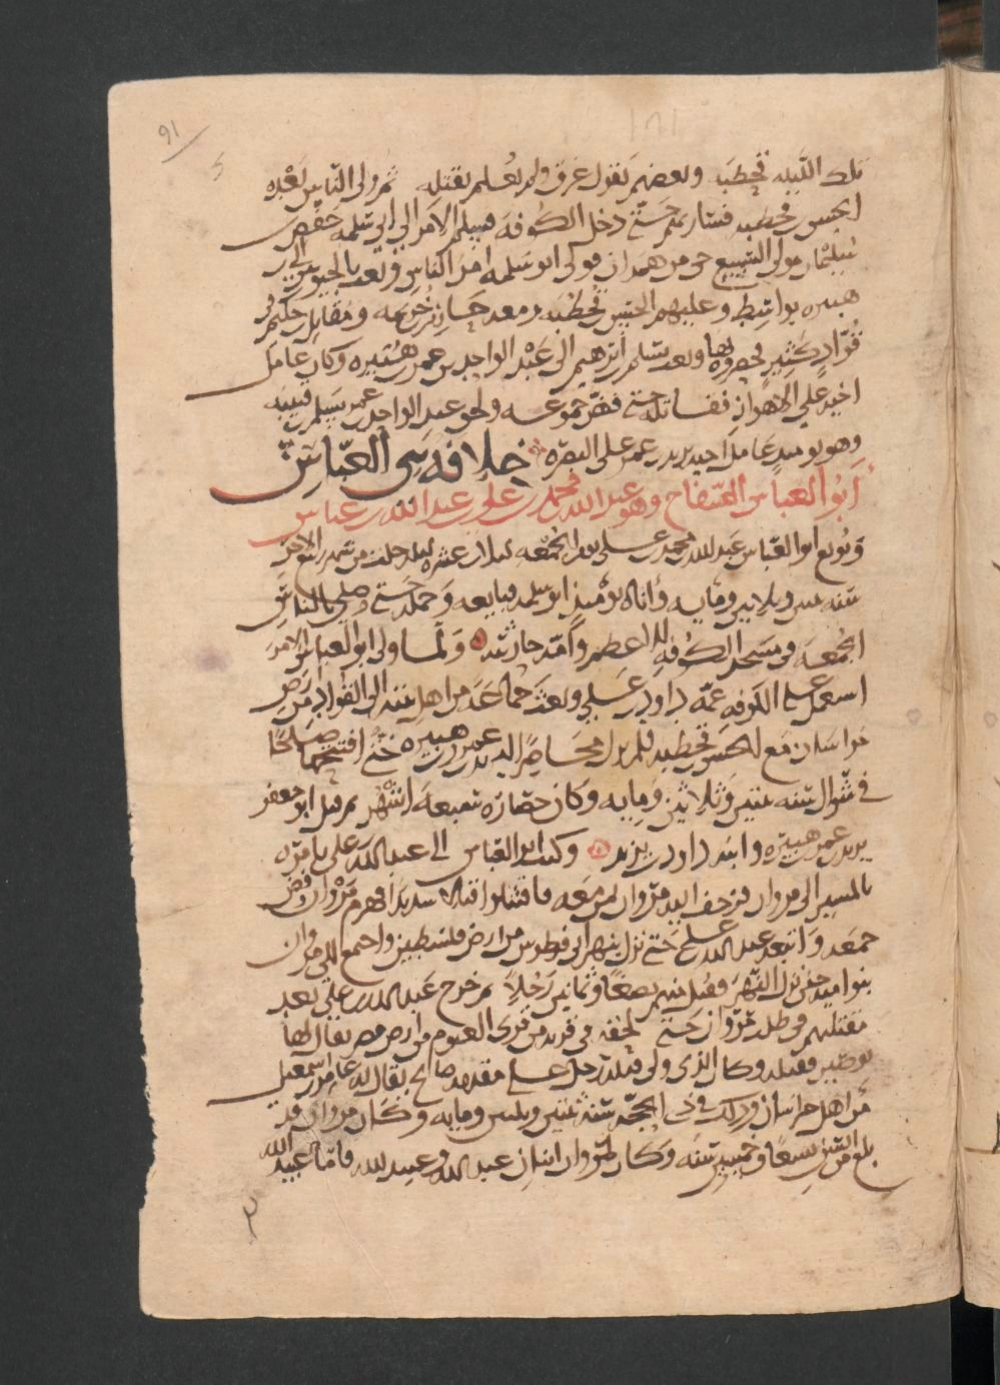 91
تلك الليله قحطبه وبعضهم يقول غرق ولم يعلم بقتله ثم ولي الناس بعده
الحسن بن قحطبه فسار بهم حتى دخل الكوفه فسلم الامر الى ابي سلمه حفص بن
سليمان مولى السبيع حي من همدان فولى ابو سلمه امر الناس وبعث بالجيوش الى ابن
هبيره بواسط وعليهم الحسن بن قحطبه ومعه خازم بن خزيمه ومقاتل بن حكيم في
قواد كثير فحصروه بها وبعث بسام بن ابرهيم الى عبد الواحد بن عمر بن هبيره وكان عامل
اخيه على الاهواز فقاتله حتى فض جموعه ولحق عبد الواحد بن عمر بسلم بن قتيبه
وهو يوميذ عامل اخيه يزيد بن عمر على البصره خلافة بني العباس
ابو العباس السفاح وهو عبد الله بن محمد بن علي بن عبد الله بن عباس
وبويع ابو العباس عبد الله بن محمد بن علي يوم الجمعه لثلاث عشره ليله خلت من شهر ربيع الاخر
سنه اثنتين وثلاثين ومايه وأتاه يوميذ ابو سلمه فبايعه وحمله حتى صلى بالناس
الجمعه في مسجد الكوفه الاعظم وأمه حارثيه ولما ولي ابو العباس الامر
استعمل على الكوفه عمه داود بن علي وبعث جماعه من اهل بيته الى القواد من ارض
خراسان مع الحسن بن قحطبه فلم يزل محاصرا ليزيد بن عمر بن هبيره حتى افتتحها صلحا
في شوال سنه اثنتين وثلاثين ومايه وكان حصاره تسعه اشهر ثم قتل ابو جعفر
يزيد بن عمر بن هبيره وابنه داود بن يزيد وكتب ابو العباس الى عبد الله بن علي يامره
بالمسير الى مروان فزحف اليه مروان بمن معه فاقتتلوا قتالا شديدا فهزم مروان وفض
جمعه واتبعه عبد الله بن علي حتى نزل بنهر ابي فطرس من ارض فلسطين واجتمع الى مروان
بنوا اميه حين نزل النهر فقتل منهم بضعا وثمانين رجلا ثم خرج عبد الله بن علي بعد
مقتلهم في طلب مروان حتى لحقه في قريه من قرى الفيوم من ارض مصر يقال لها
بوصير فقتله وكان الذي ولي قتله رجل على مقدمه صالح يقال له عامر بن اسمعيل
من اهل خراسان وذلك في ذي الحجه سنه اثنتين وثلثين ومايه وكان مروان قد
بلغ من السن تسعا وخمسين سنه وكان لمروان ابنان عبد الله وعبيد الله فاما عبيد الله